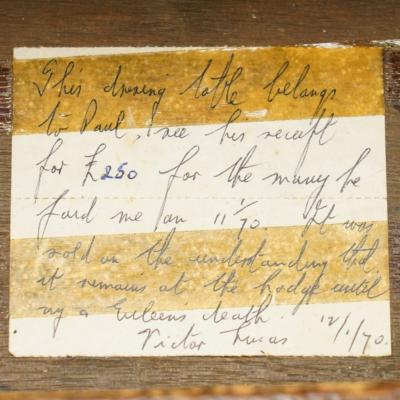 This dining table belongs
to Paul, I see his receipt
for £250 for the money he
paid me on 11/1/70. It was
sold on the understanding that
it remains at the Lodge until
my & Eileen's death.
Victor Lucas 12/1/70.